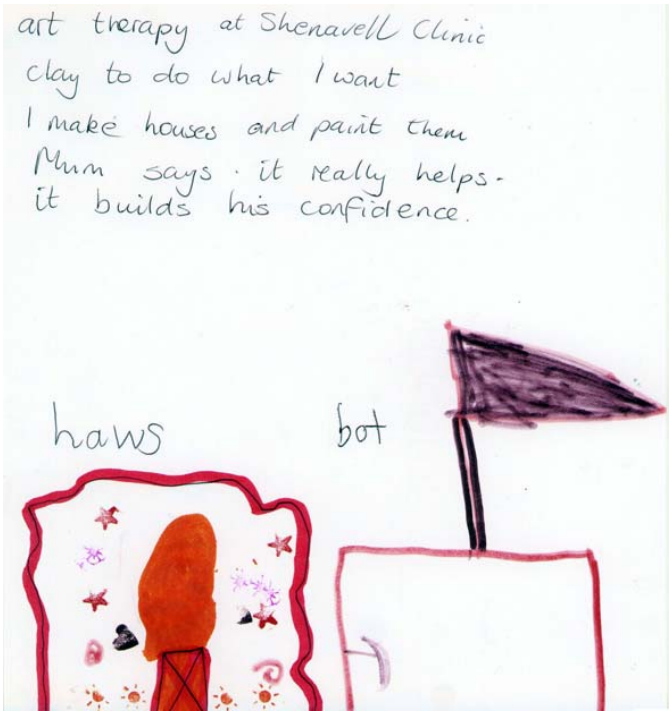 art therapy at Shenavell Clinic
clay to do what I want
I make houses and paint them
Mum says. it really helps.
it builds his confidence.
haws bot